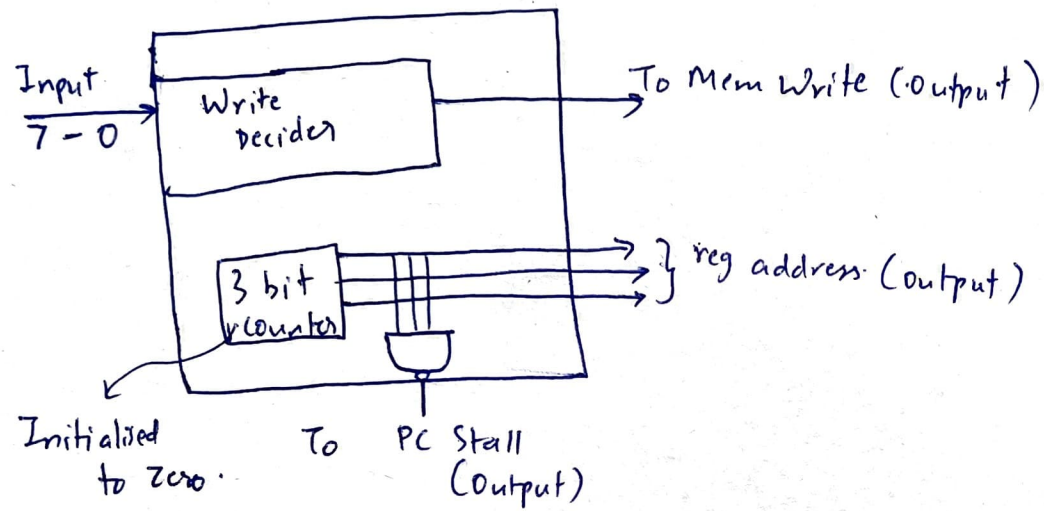 Input
7 - 0
Write
Decider
To Mem Write (Output)
3 bit
counter
reg address. (Output)
Initialised
to zero.
To PC Stall
(Output)